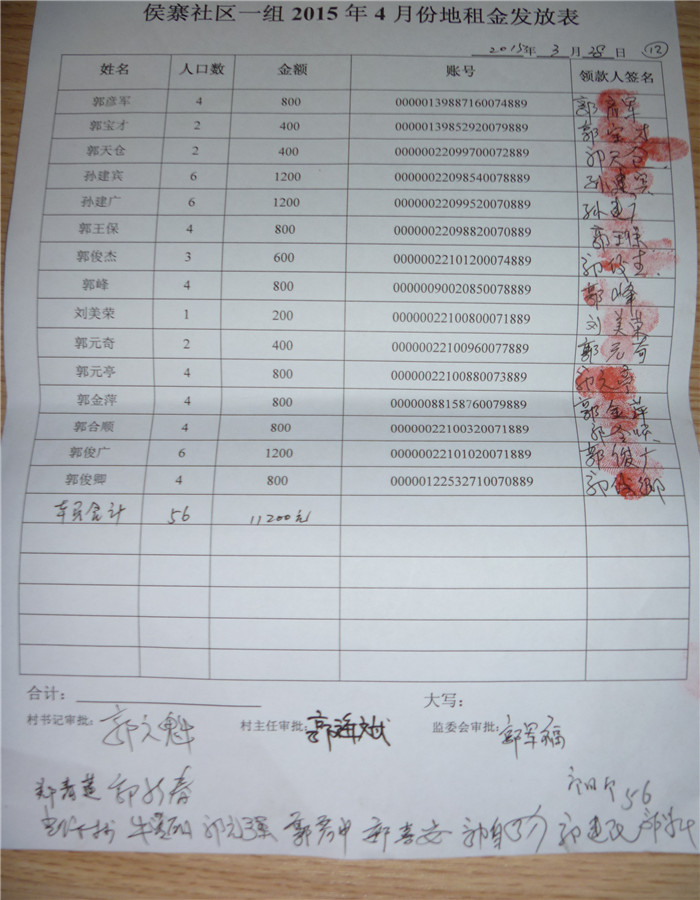 侯寨社区一组 2015 年 4 月份地租金发放表
2015年 3 月 28 日 (12)
姓名 人口数 金额 账号 领款人签名
郭彦军 4 800 00000139887160074889 郭彦军
郭宝才 2 400 00000139852920079889 郭宝才
郭天仓 2 400 00000022099700072889 郭天仓
孙建宾 6 1200 00000022098540078889 孙建宾
孙建广 6 1200 00000022099520070889 孙建广
郭王保 4 800 00000022098820070889 郭王保
郭俊杰 3 600 00000022101200074889 郭俊杰
郭峰 4 800 00000090020850078889 郭峰
刘美荣 1 200 00000022100800071889 刘美荣
郭元奇 2 400 00000022100960077889 郭元奇
郭元亭 4 800 00000022100880073889 郭元亭
郭金萍 4 800 00000088158760079889 郭金萍
郭合顺 4 800 00000022100320071889
郭俊广 6 1200 00000022101020071889 郭俊广
郭俊卿 4 800 00000122532710070889 郭俊卿
本页合计 56 11200元
合计: 大写:
村书记审批: 郭文魁 村主任审批: 郭海斌 监委会审批: 郭军福
56